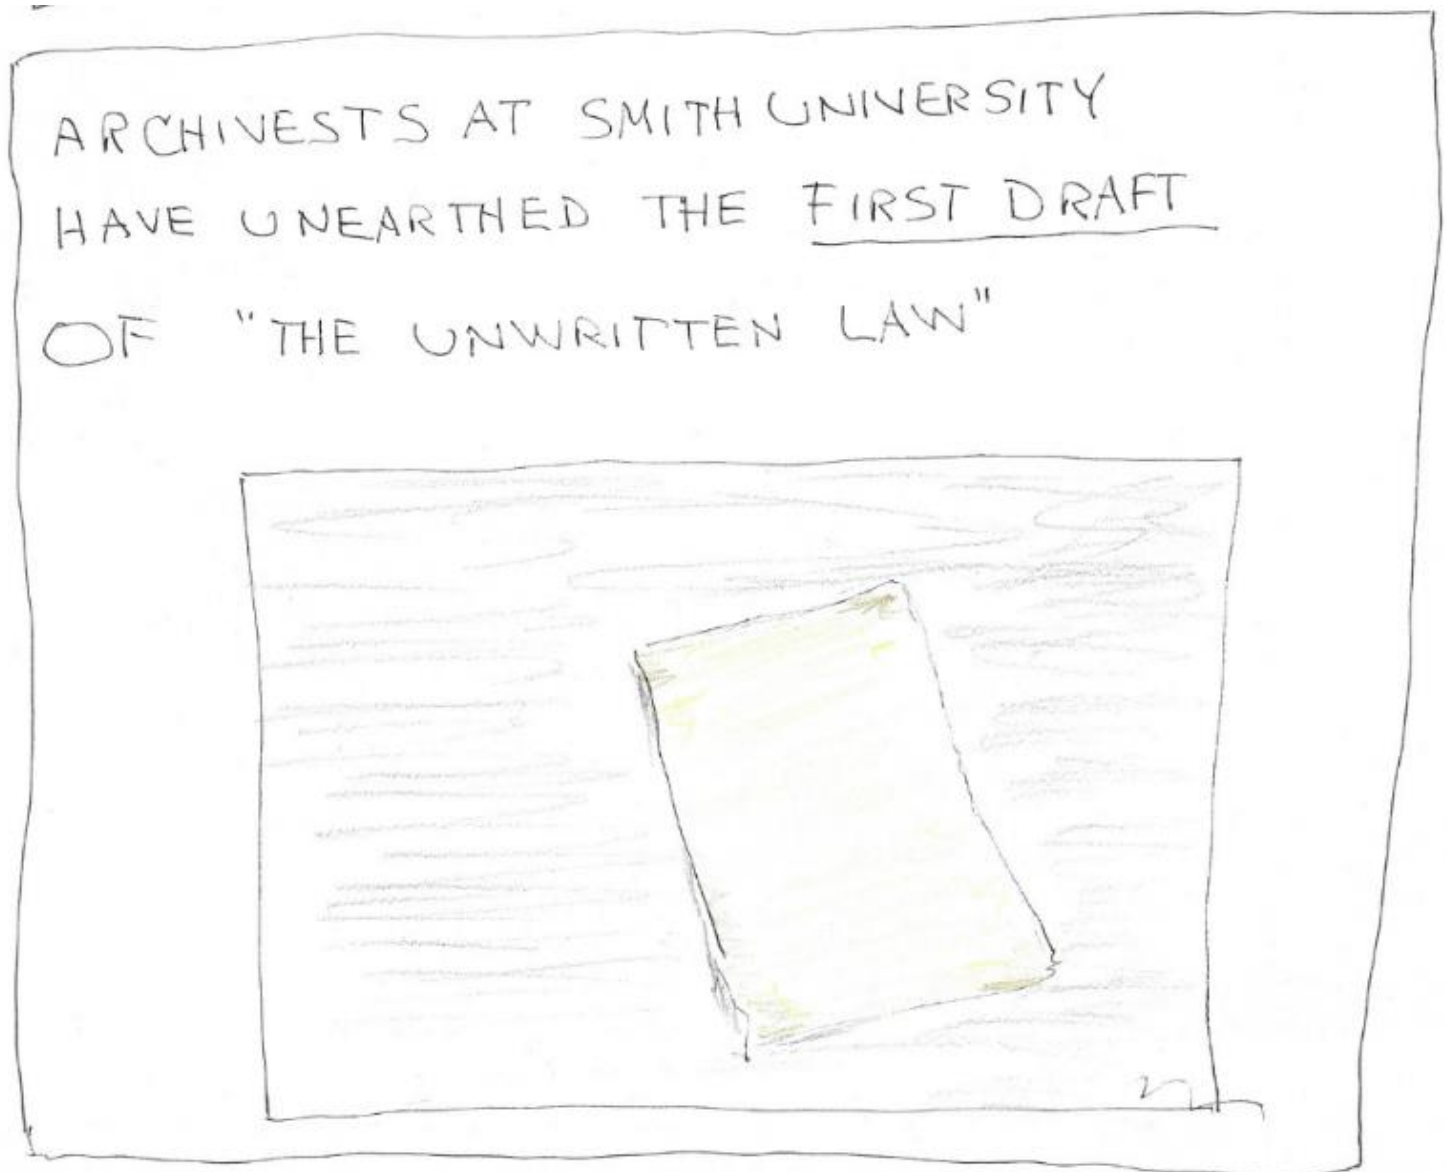 ARCHIVESTS AT SMITH UNIVERSITY
HAVE UNEARTHED THE FIRST DRAFT
OF "THE UNWRITTEN LAW"